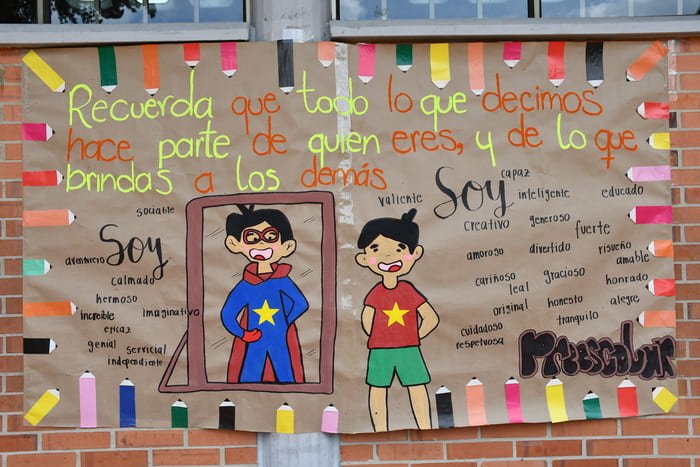 Recuerda que todo lo que decimos
hace parte de quien eres, y de lo que
brindas a los demás
Soy
sociable
aventurero
calmado
hermoso
increible
imaginativo
eficaz
genial
servicial
independiente
Soy
valiente
capaz
inteligente
educado
creativo
generoso
fuerte
amoroso
divertido
risueño
amable
cariñoso
gracioso
leal
honrado
original
honesto
alegre
tranquilo
cuidadoso
respetuosa
Preescolar